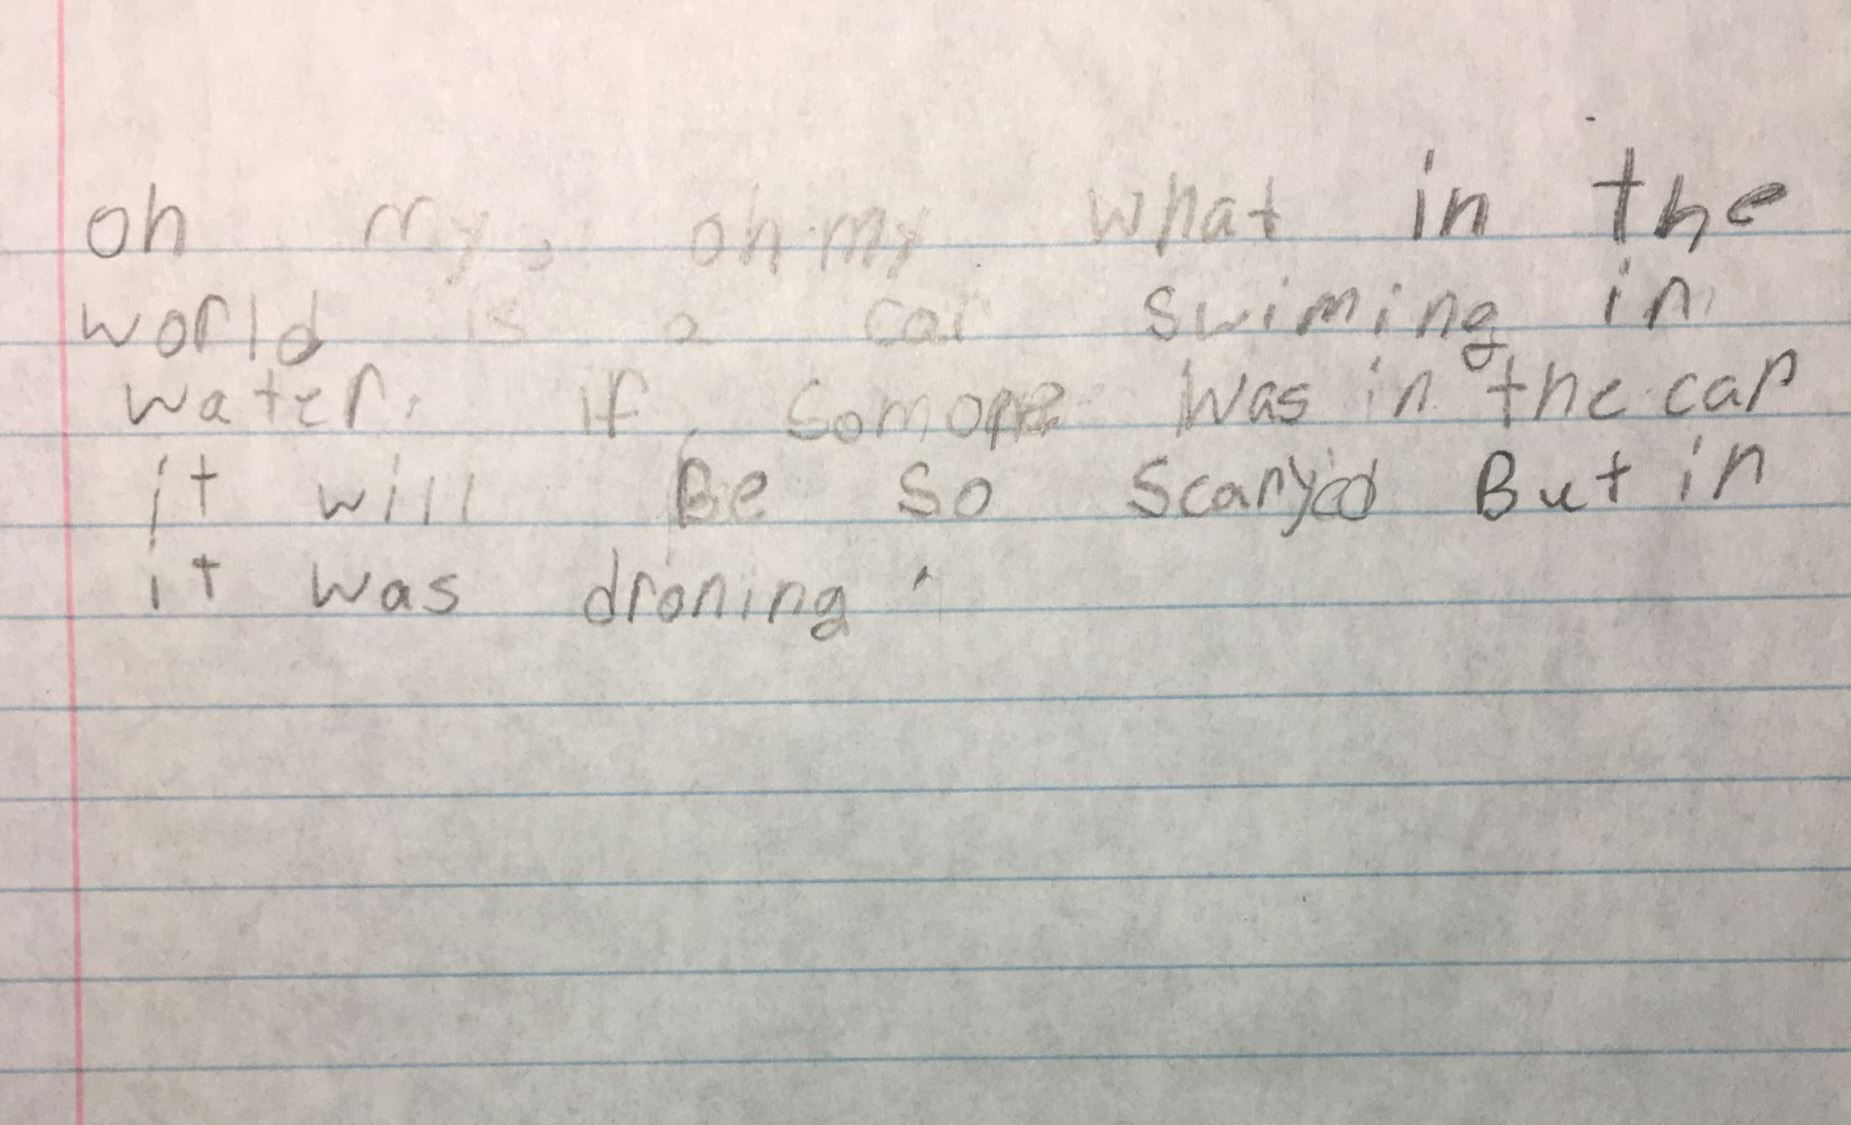 oh my, oh my what in the
world is a car swiming in
water. if somone was in the car
it will Be so scaryed But in
it was droning.